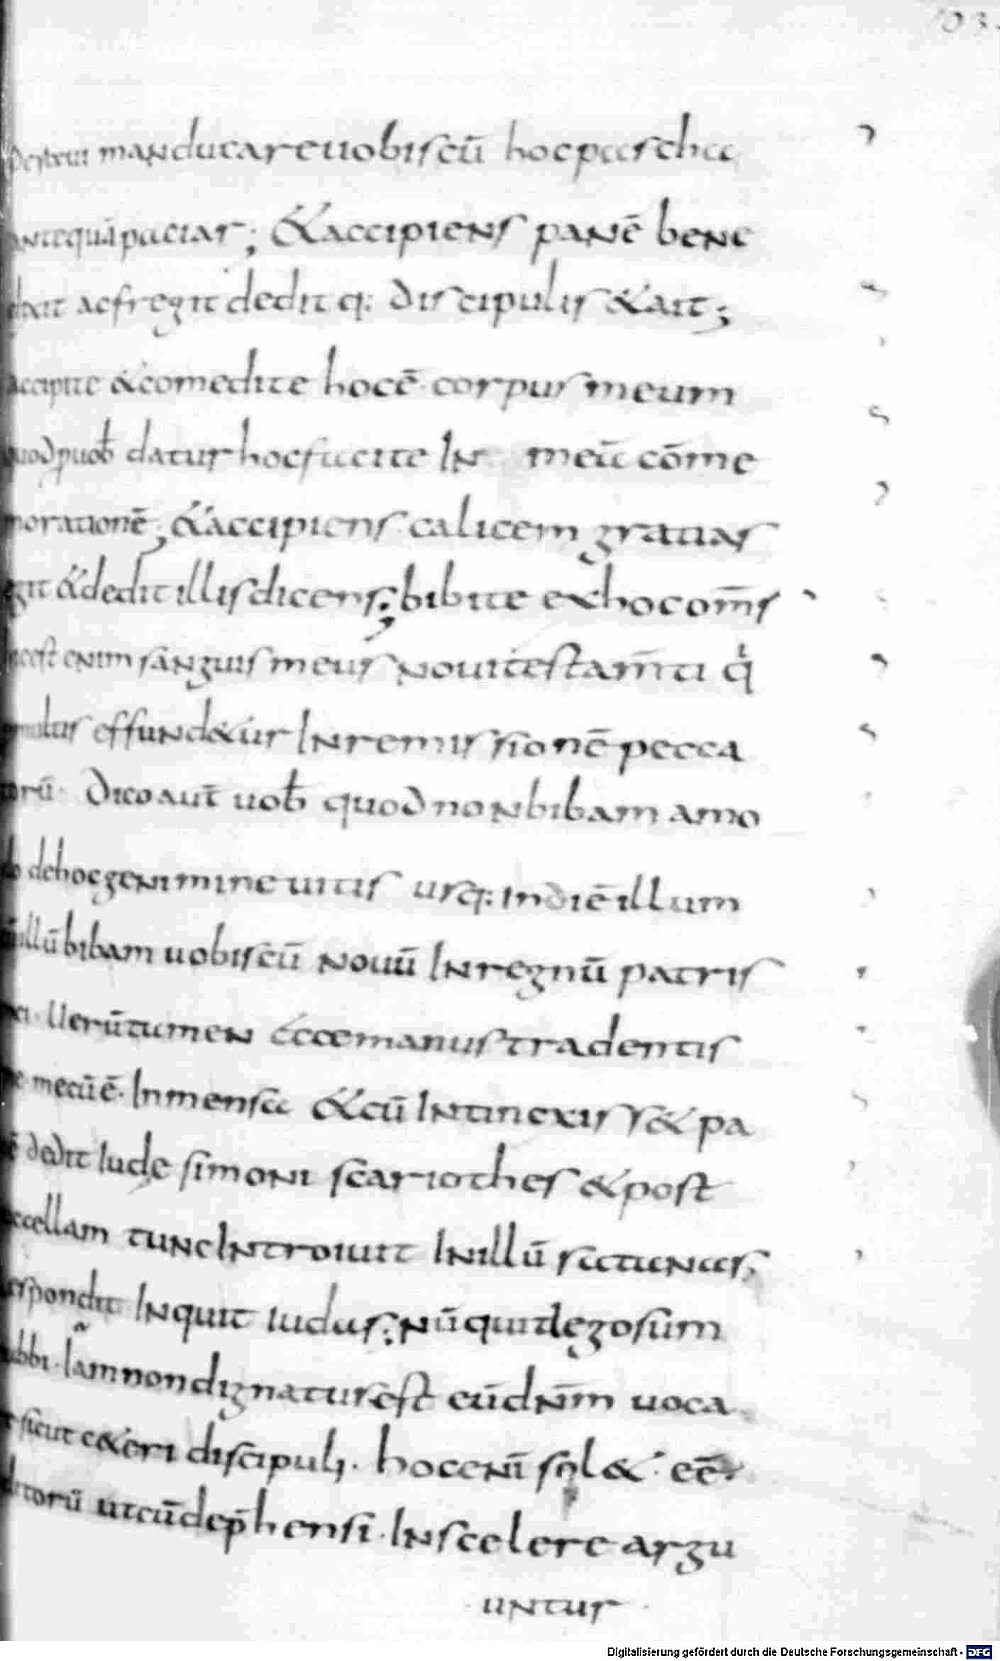 103
manducare uobiscū hoc pascha
antequā paciar; & accipiens panē bene
dixit ac fregit dedit q: discipulis & ait;
accipite & comedite hoc ē corpus meum
quod p uob datur hoc facite In meū cōme
morationē; & accipiens calicem gratias
egit & dedit illis dicens; bibite ex hoc om̄s
hic est enim sanguis meus noui testam̄ti q
multis effund&ur In remissionē pecca
torū. Dico aut̄ uob quod non bibam amo
do de hoc genimine uitis usq: In diē illum
illū bibam uobiscū nouū In regnū patris
mei. Uerūtumen Ecce manus tradentis
me mecū ē. In mensa & cū Intinexiss& pa
nē dedit Iude simoni scariothes & post
buccellam tunc Introiuit In illū satanas;
respondit Inquit iudas; nūquid ego sum
rabbi. Iam non dignatur est eū dn̄m uoca
re sicut c&eri discipuli. hoc eni sol& eē.
utcū dep̄hensi. In scelere argu
untur
Digitalisierung gefördert durch die Deutsche Forschungsgemeinschaft - DFG